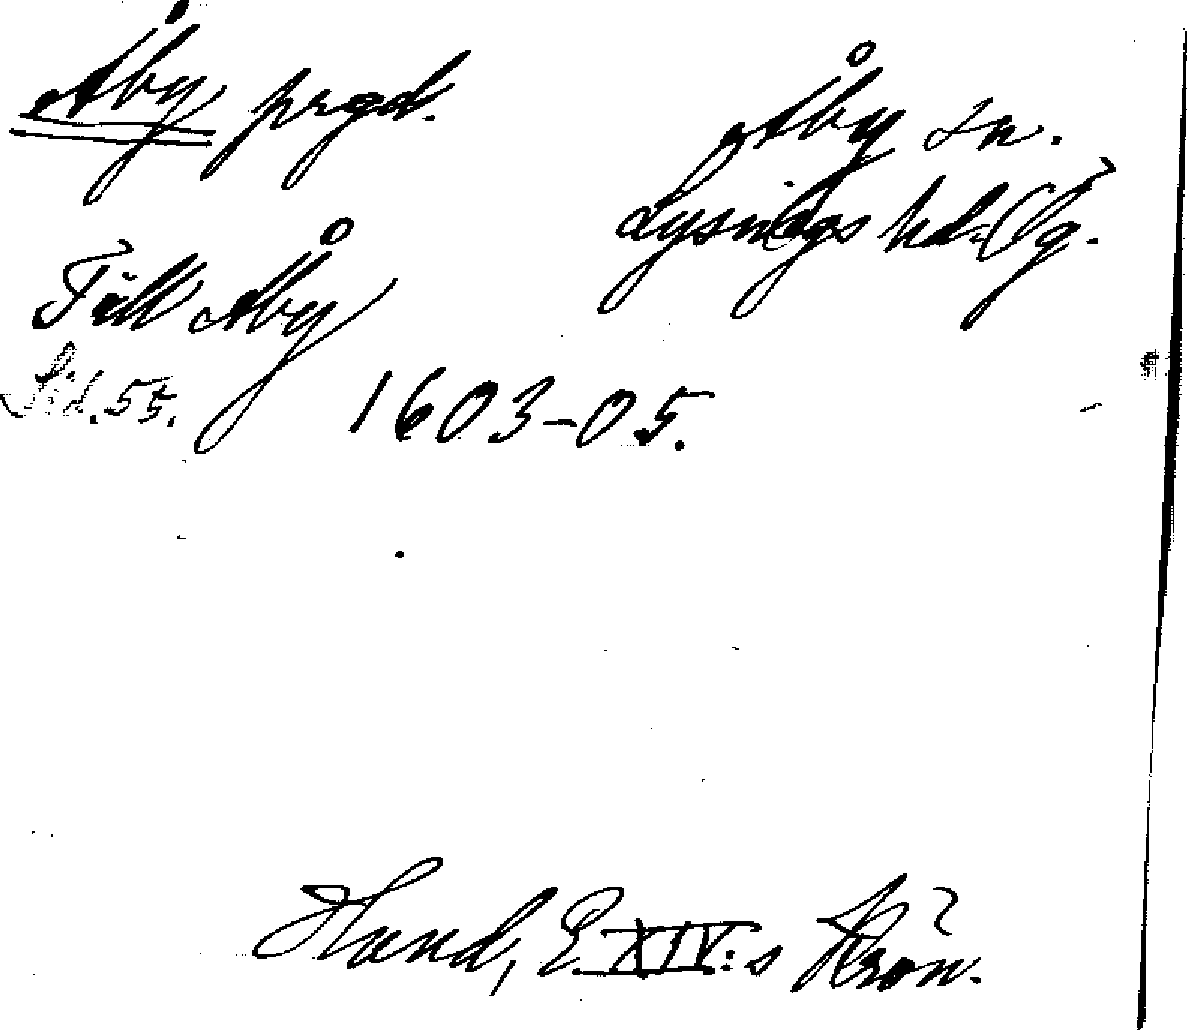 Åby prgd.
Åby sn.
Lysings hd. Ög.
Till Åby
Sid. 55.
1603-05.
Hand, E. XIV:s Krön.